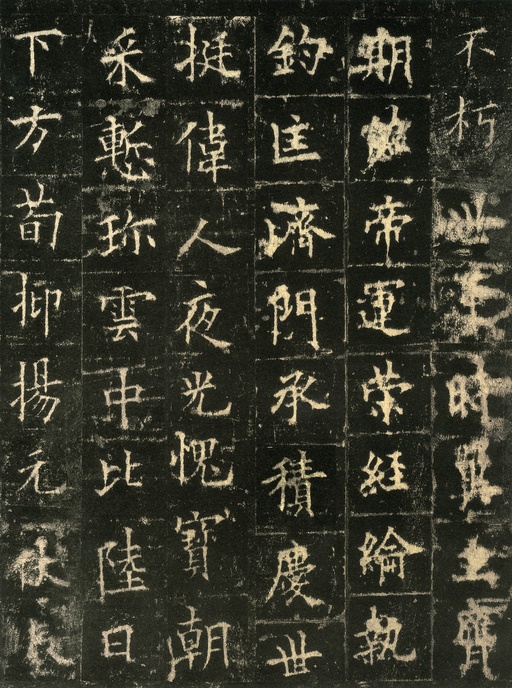 不朽時
期帝運經綸執
鈞匡濟門承積慶世
挺偉人夜光愧寶朝
采慙珍雲中比陸日
下方荀抑揚元